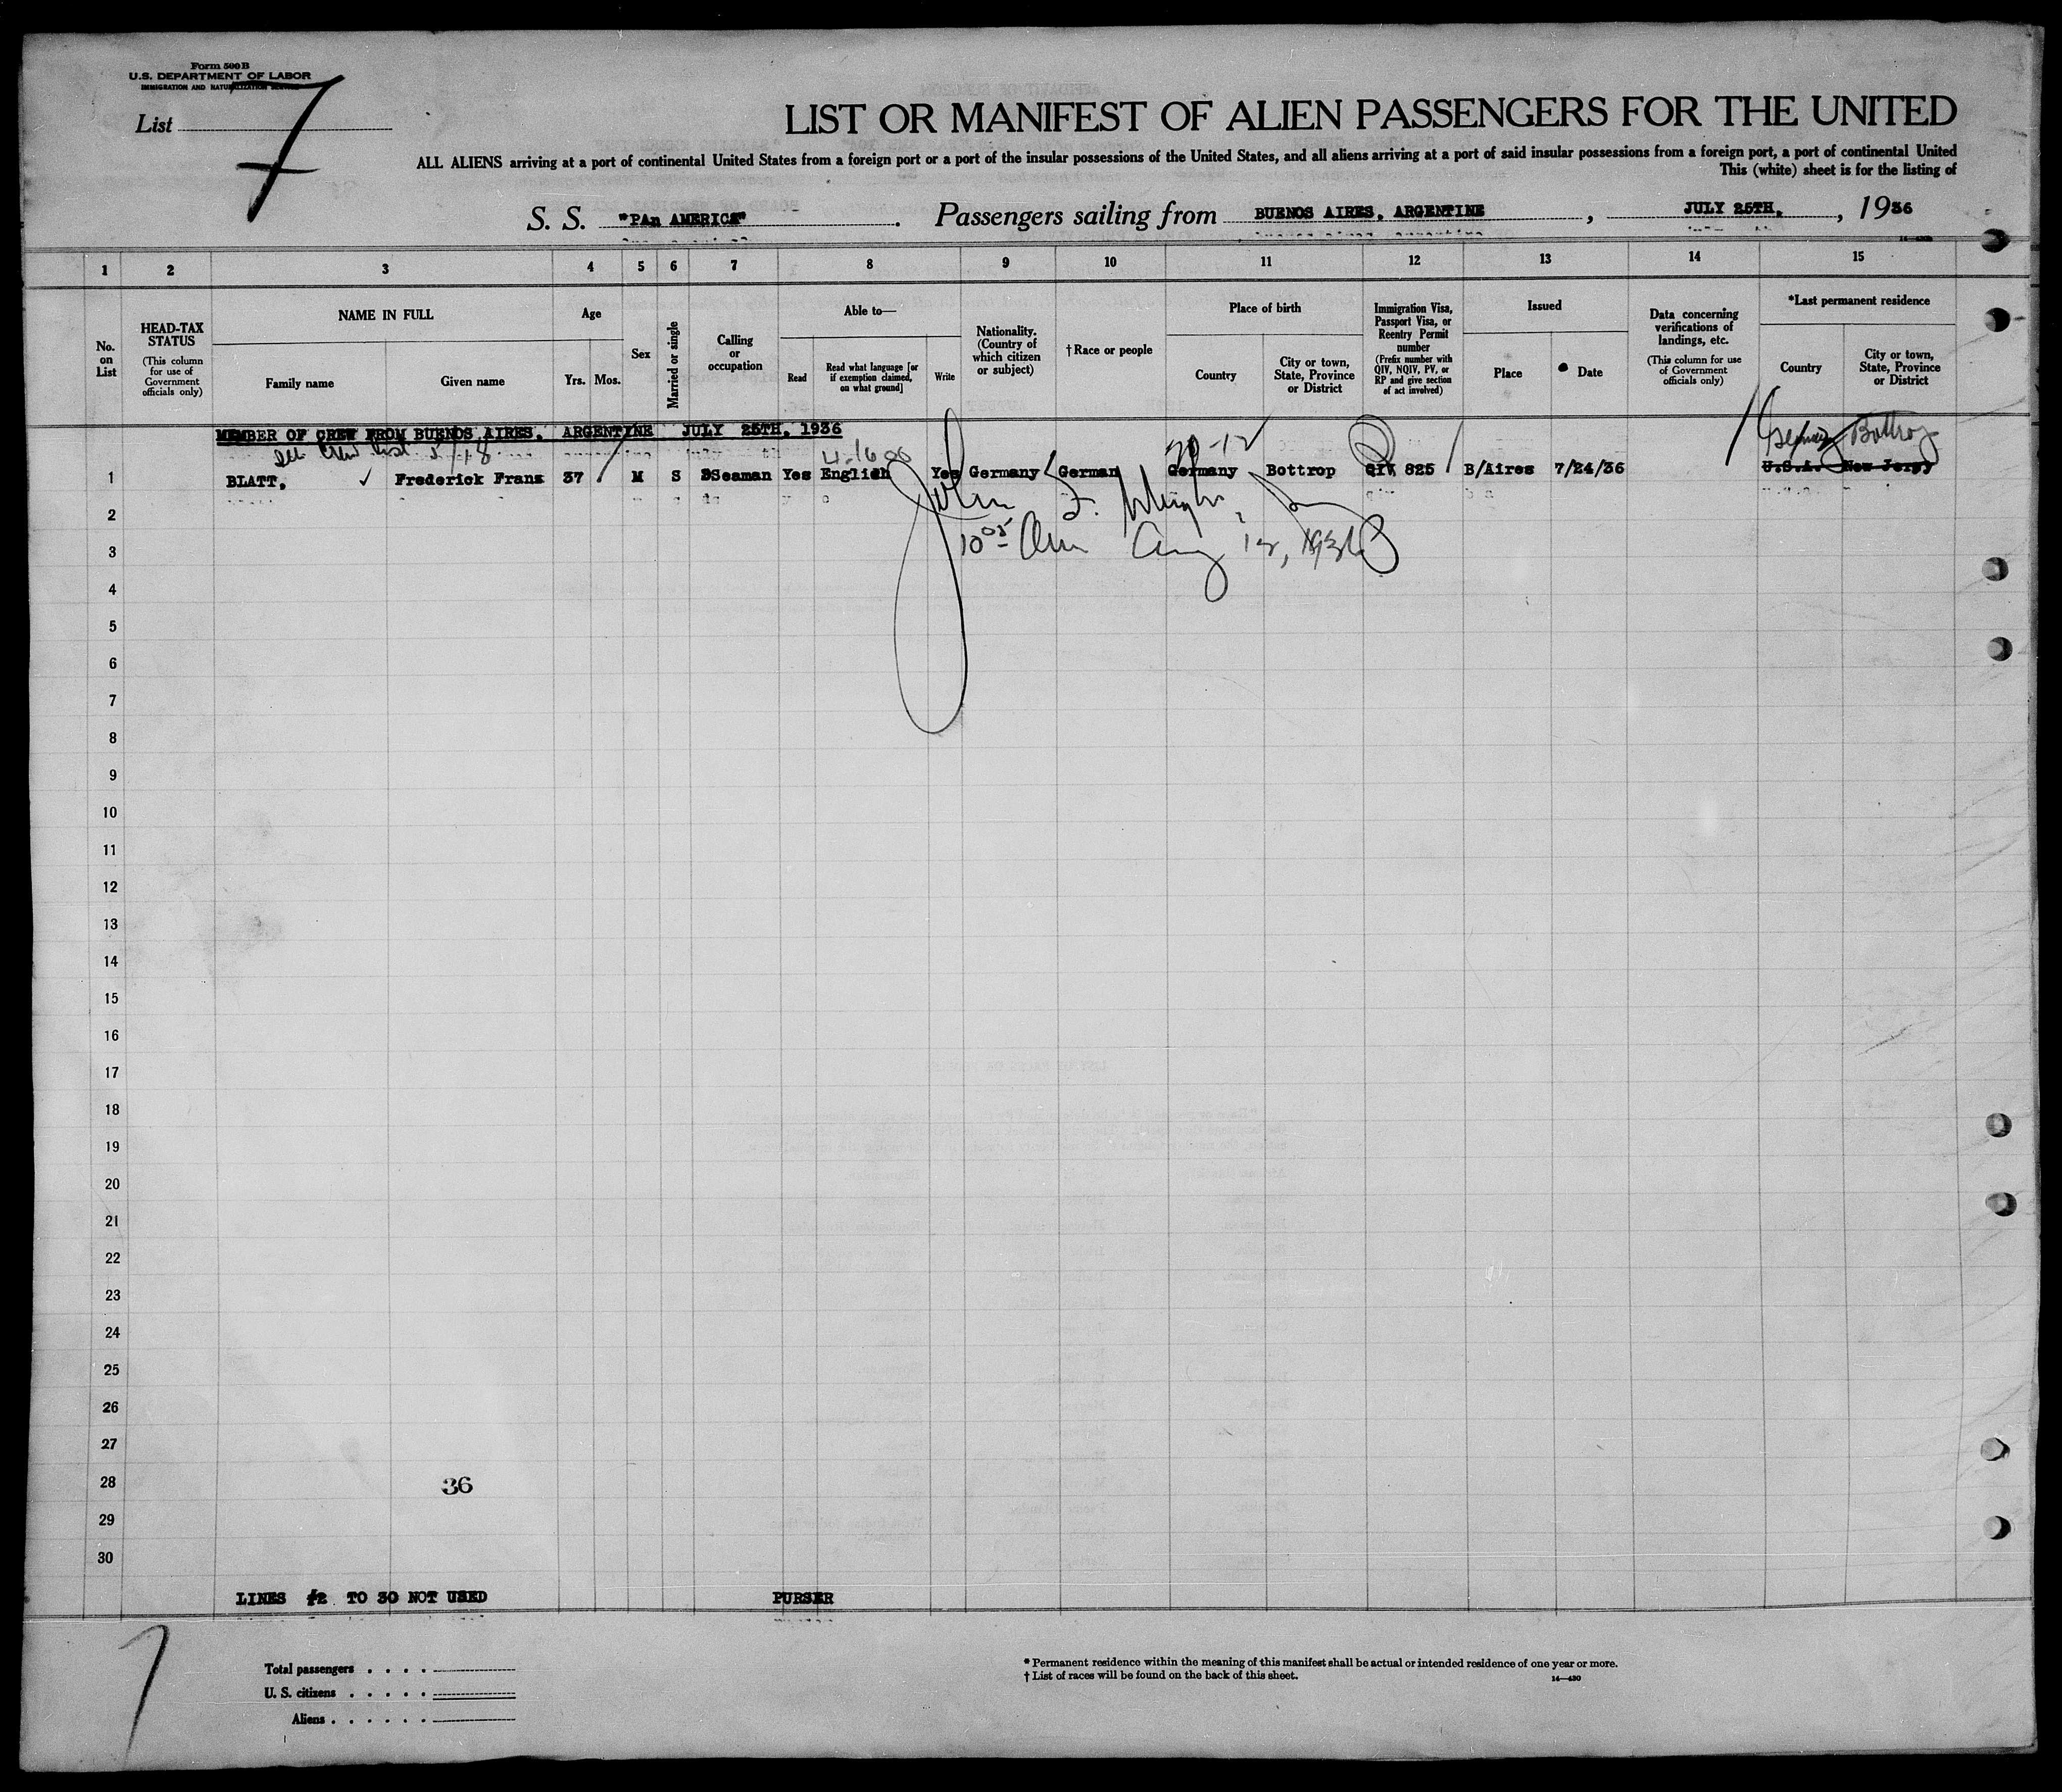 Form 500 B
U.S. DEPARTMENT OF LABOR
IMMIGRATION AND NATURALIZATION SERVICE
List 7
LIST OR MANIFEST OF ALIEN PASSENGERS FOR THE UNITED
ALL ALIENS arriving at a port of continental United States from a foreign port or a port of the insular possessions of the United States, and all aliens arriving at a port of said insular possessions from a foreign port, a port of continental United
This (white) sheet is for the listing of
S. S. "PAn AMERICA". Passengers sailing from BUENOS AIRES, ARGENTINE, JULY 25TH, , 1936
1 2 3 4 5 6 7 8 9 10 11 12 13 14 15
No. on List
HEAD-TAX STATUS (This column for use of Government officials only)
NAME IN FULL
Family name Given name
Age
Yrs. Mos.
Sex
Married or single
Calling or occupation
Able to—
Read
Read what language [or if exemption claimed, on what ground]
Write
Nationality. (Country of which citizen or subject)
† Race or people
Place of birth
Country
City or town, State, Province or District
Immigration Visa, Passport Visa, or Reentry Permit number (Prefix number with QIV, NQIV, PV, or RP and give section of act involved)
Issued
Place Date
Data concerning verifications of landings, etc. (This column for use of Government officials only)
*Last permanent residence
Country
City or town, State, Province or District
MEMBER OF CREW FROM BUENOS AIRES, ARGENTINE JULY 25TH, 1936
Germany Bottrop
1 BLATT, ✓ Frederick Franz 37 M S Seaman Yes English Yes Germany German Germany Bottrop QIV 825 B/Aires 7/24/36 U.S.A. New Jersy
2
John F.
3
10 05 Am Aug 12, 1936
4
5
6
7
8
9
10
11
12
13
14
15
16
17
18
19
20
21
22
23
24
25
26
27
28 36
29
30
LINES #2 TO 30 NOT USED PURSER
Total passengers . . . .
U. S. citizens . . . . .
Aliens . . . . . .
* Permanent residence within the meaning of this manifest shall be actual or intended residence of one year or more.
† List of races will be found on the back of this sheet.
14—430